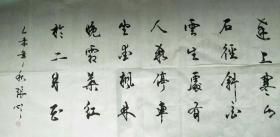 遠上寒山
石徑斜白
雲生處有
人家停車
坐愛楓林
晚霜葉紅
於二月花
乙未年秋張